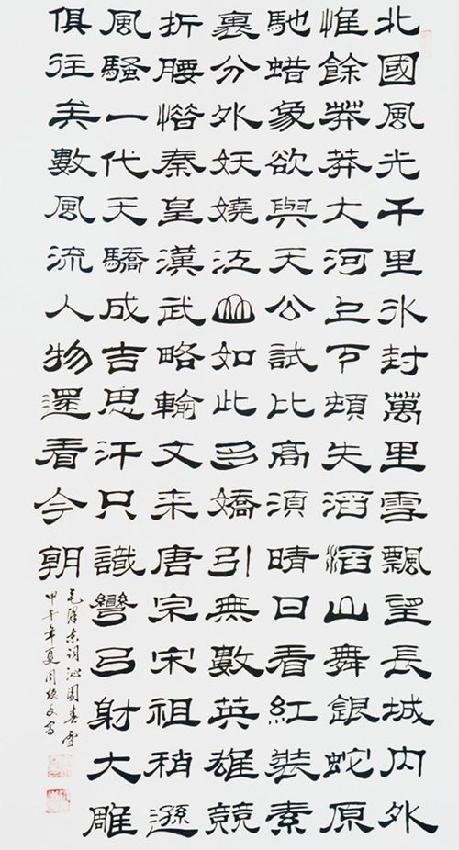 北國風光千里冰封萬里雪飄望長城内外
惟餘莽莽大河上下頓失滔滔山舞銀蛇原
馳蜡象欲與天公試比高須晴日看紅裝素
裹分外妖嬈江山如此多嬌引無數英雄競
折腰惜秦皇漢武略輸文来唐宗宋祖稍遜
風騷一代天驕成吉思汗只識彎弓射大雕
俱往矣數風流人物還看今朝
毛澤东词沁園春雪
甲午年夏